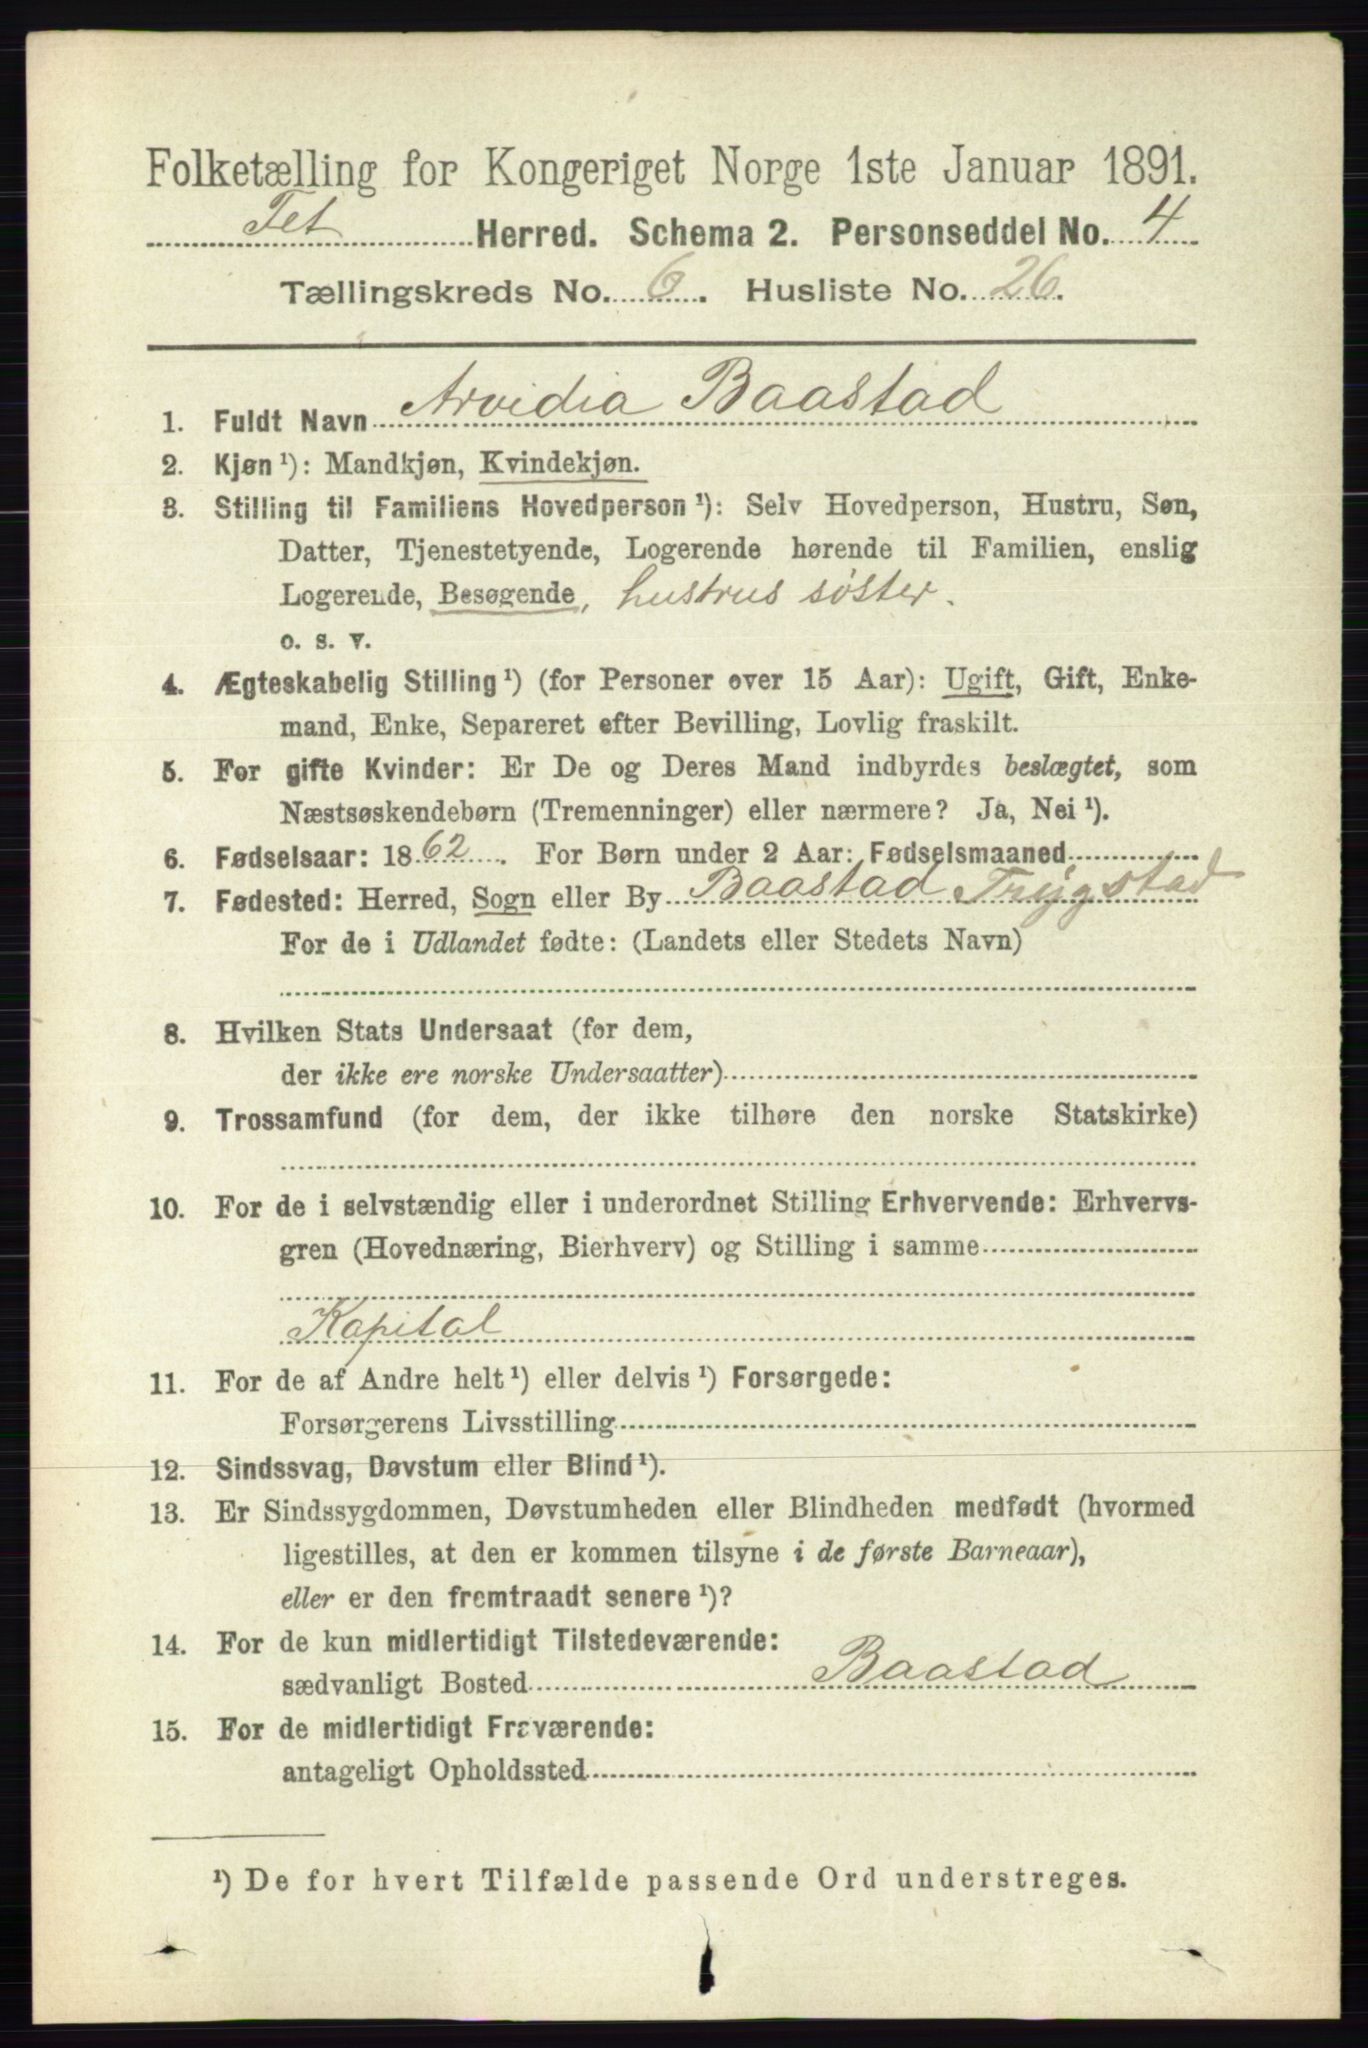 Folketælling for Kongeriget Norge 1ste Januar 1891.
Fet Herred. Schema 2. Personseddel No. 4
Tællingskreds No. 6. Husliste No. 26.
1. Fuldt Navn Arvidia Baastad
2. Kjøn ¹): Mandkjøn, Kvindekjøn.
3. Stilling til Familiens Hovedperson ¹): Selv Hovedperson, Hustru, Søn,
Datter, Tjenestetyende, Logerende hørende til Familien, enslig
Logerende, Besøgende, hustrus söster.
o. s. v.
4. Ægteskabelig Stilling ¹) (for Personer over 15 Aar): Ugift, Gift, Enke-
mand, Enke, Separeret efter Bevilling, Lovlig fraskilt.
5. For gifte Kvinder: Er De og Deres Mand indbyrdes beslægtet, som
Næstsøskendebørn (Tremenninger) eller nærmere? Ja, Nei ¹).
6. Fødselsaar: 1862. For Børn under 2 Aar: Fødselsmaaned
7. Fødested: Herred, Sogn eller By Baastad Trygstad
For de i Udlandet fødte: (Landets eller Stedets Navn)
8. Hvilken Stats Undersaat (for dem,
der ikke ere norske Undersaatter)
9. Trossamfund (for dem, der ikke tilhøre den norske Statskirke)
10. For de i selvstændig eller i underordnet Stilling Erhvervende: Erhvervs-
gren (Hovednæring, Bierhverv) og Stilling i samme
Kapital
11. For de af Andre helt ¹) eller delvis ¹) Forsørgede:
Forsørgerens Livsstilling
12. Sindssvag, Døvstum eller Blind ¹).
13. Er Sindssygdommen, Døvstumheden eller Blindheden medfødt (hvormed
ligestilles, at den er kommen tilsyne i de første Barneaar),
eller er den fremtraadt senere ¹)?
14. For de kun midlertidigt Tilstedeværende:
sædvanligt Bosted Baastad
15. For de midlertidigt Fraværende:
antageligt Opholdssted
¹) De for hvert Tilfælde passende Ord understreges.